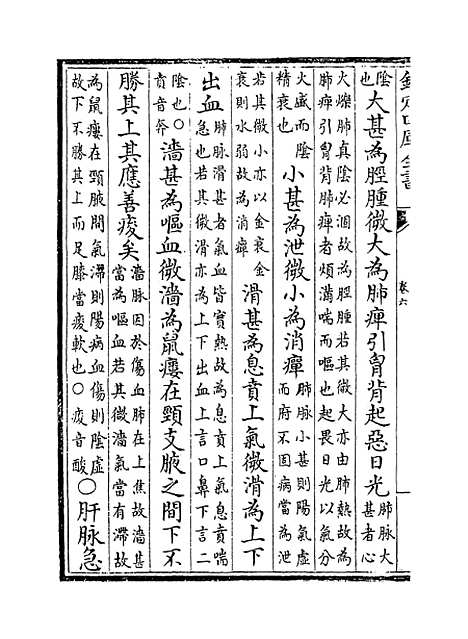 欽定四庫全書
卷六
陰也 大甚為脛腫微大為肺痺引胷背起惡日光 肺脈大甚者心
火爍肺真陰必涸故為脛腫若其微大亦由肺熱故為
肺痺引胷背肺痺者煩滿喘而嘔也起畏日光以氣分
火盛而陰精衰也 小甚為泄微小為消癉 肺脈小甚則陽氣虛而府不固病當為泄
若其微小亦以金衰金衰則水弱故為消癉 滑甚為息賁上氣微滑為上下
出血 肺脈滑甚者氣血皆實熱故為息賁上氣息賁喘急也若其微滑亦為上下出血上言口鼻下言二
陰也○賁音奔 濇甚為嘔血微濇為鼠瘻在頸支腋之間下不
勝其上其應善痠矣 濇脈因於傷血肺在上焦故濇甚當為嘔血若其微濇氣當有滯故
為鼠瘻在頸腋間氣滯則陽病血傷則陰虛故下不勝其上而足膝當痠軟也○痠音酸 ○肝脈急